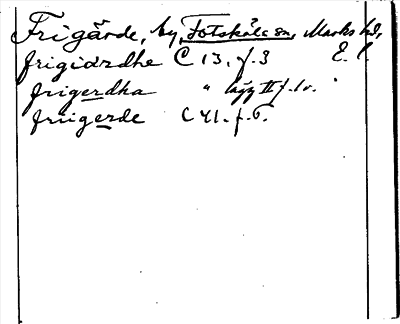 Frigärde, by, Fotskäls sn, Marks hd,
frigiærdhe C 13, f. 3 E. l.
frigerdha " lägg II f. 1 v. "
friigerde C 41. f. 6.